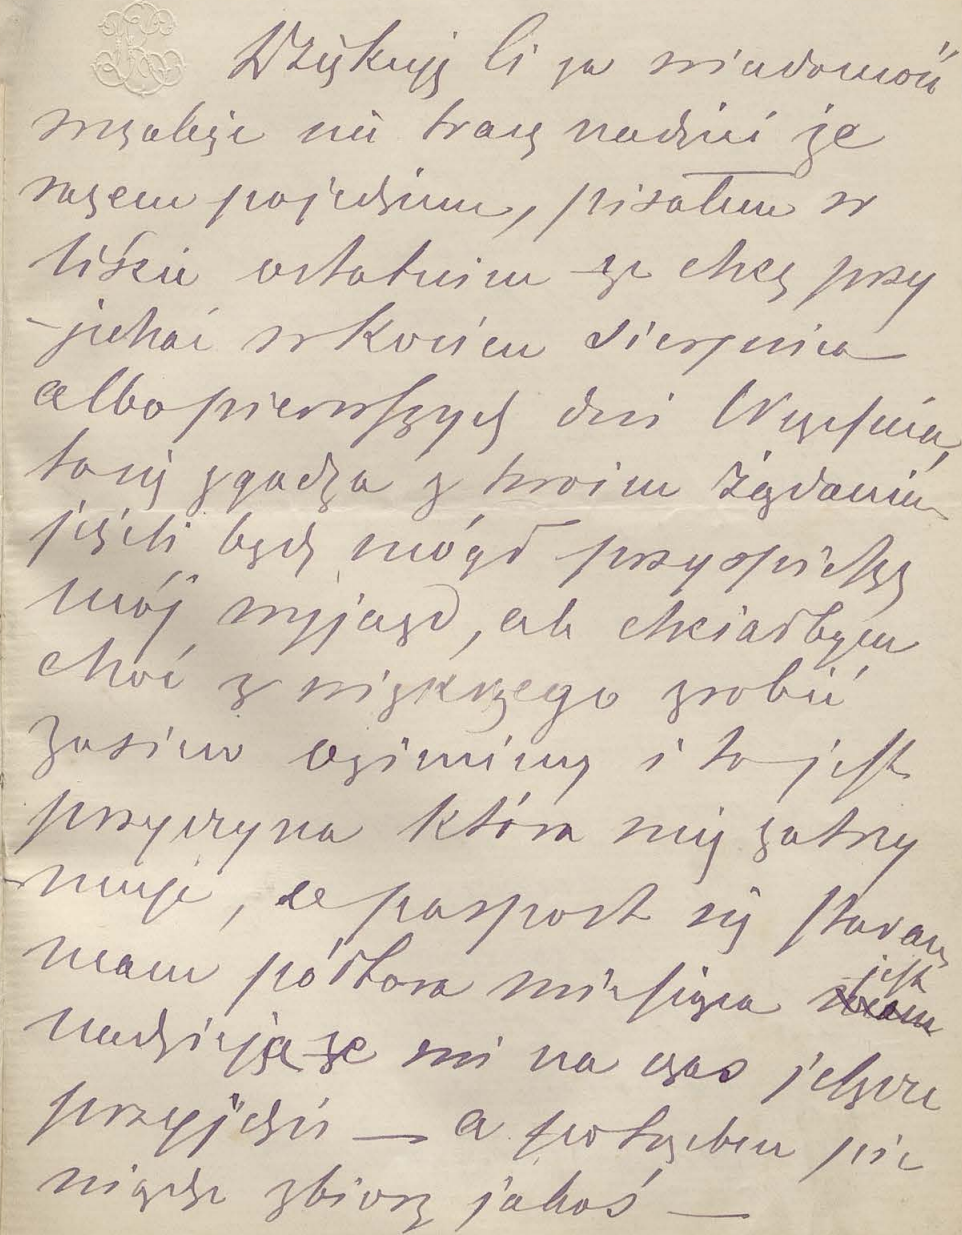 Dziękuję Ci za wiadomość
nie tracę nadziei że
razem pojedziem, pisałem w
liście ostatnim że chcę przy
-jechać w końcu sierpnia
albo pierwszych dni Września,
to się zgadza z twoim żądaniem
jeżeli będę mógł przyspieszę
mój wyjazd, ale chciałbym
choć z większego zrobić
zasiew oziminy i to jest
przyczyna która mię zatrzy
-muje, o paszport się staram
mam półtora miesiąca jest
nadzieja że mi na czas jeszcze
przyjdzie — a potrzebne pie
niądze zbiorę jakoś —